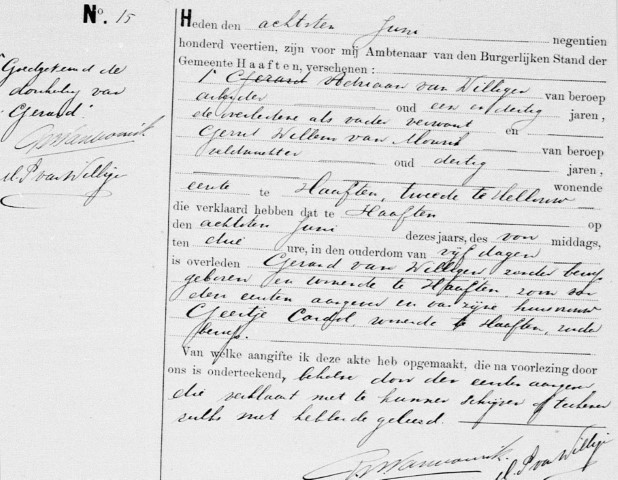 No. 15
Goedgekeurd de
doorhaling van
"Gerard"
Heden den achtsten Juni negentien
honderd veertien, zijn voor mij Ambtenaar van den Burgerlijken Stand der
Gemeente Haaften, verschenen:
1e Gerard Adriaan van Willigen van beroep
arbeider oud een en dertig jaren,
de overledene als vader verwant en
Gerrit Willem van Mourik van beroep
veldwachter oud dertig jaren,
wonende
eerste te Haaften, tweede te Hellouw
die verklaard hebben dat te Haaften op
den achtsten Juni dezes jaars, des voor middags,
ten drie ure, in den ouderdom van vijf dagen
is overleden Gerard van Willigen, zonder beroep
geboren en wonende te Haaften, zoon van
den eersten aangever en van zijne huisvrouw
Geertje Cardol, wonende te Haaften, zonder
beroep.
Van welke aangifte ik deze akte heb opgemaakt, die na voorlezing door
ons is onderteekend, behalve door den eersten aangever
die verklaart niet te kunnen schrijven of teekenen
zulks niet hebbende geleerd.